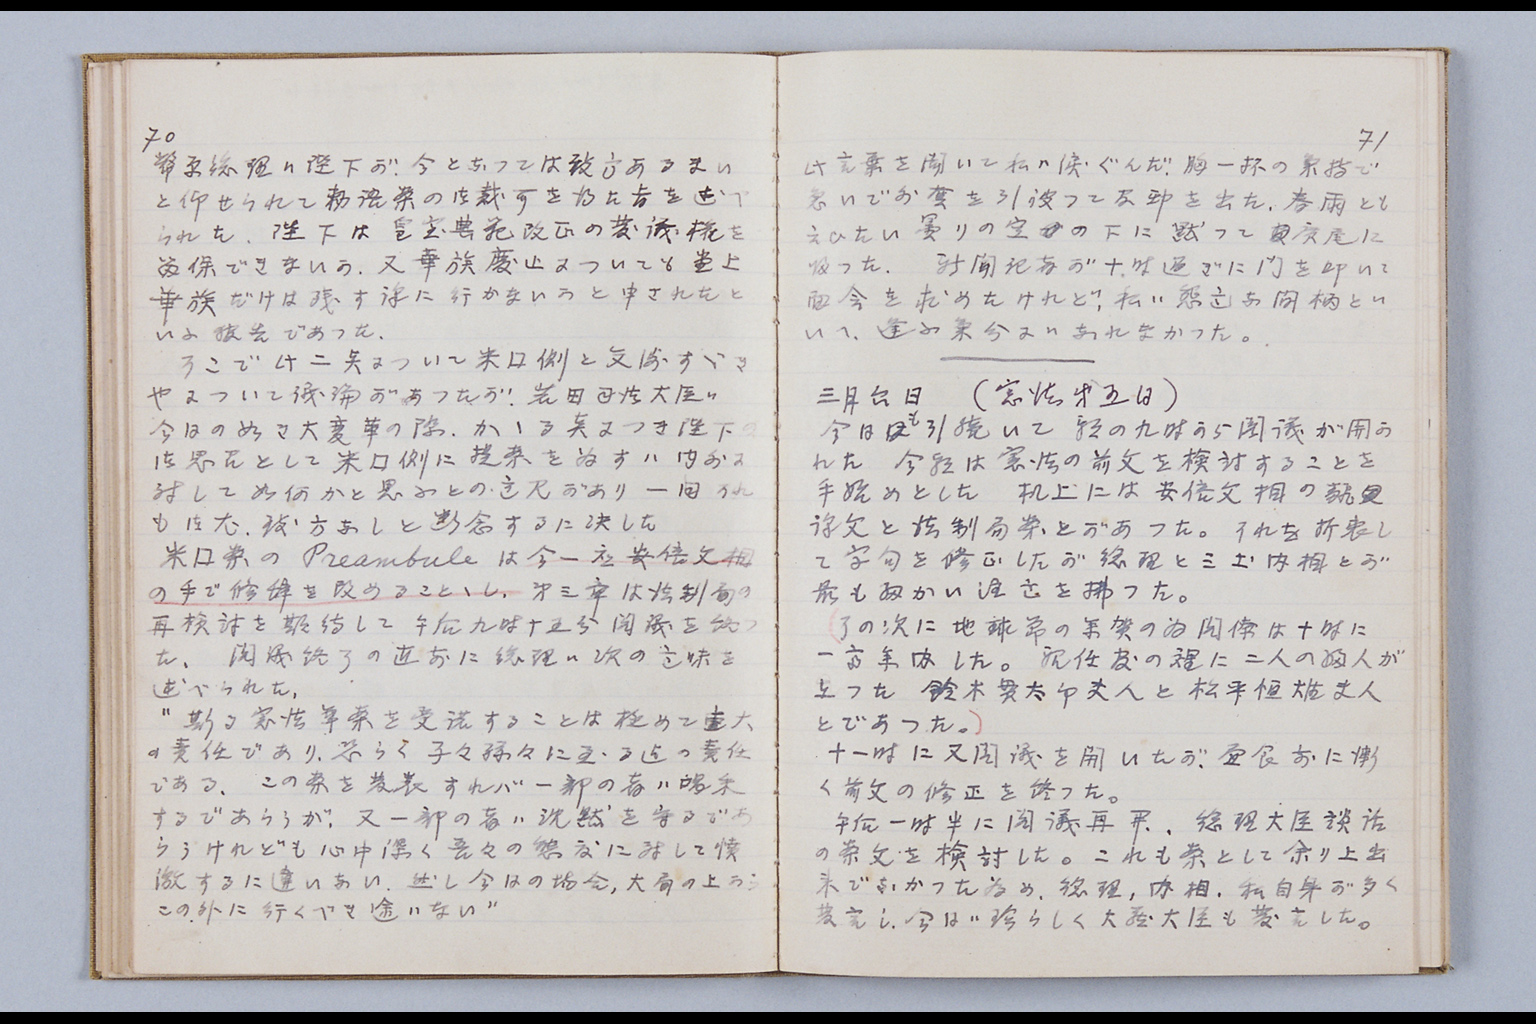 70
幣原総理ハ陛下が今となっては致方あるまい
と仰せられて勅語案の御裁可を得た旨を述べ
られた. 陛下は皇室典範改正の発議権を
留保できまいか. 又華族廃止についても堂上
華族だけは残す訳に行かないかと申されたと
いふ報告であつた.
そこで此二点について米口側と交渉すべき
やについて議論があつたが. 岩田司法大臣ハ
今日の如き大変革の際. かゝる点につき陛下の
御思召として米口側に提案を為すハ内外に
対して如何かと思ふとの意見があり一同それ
も御尤. 致方なしと断念するに決した
米口案の Preambule は今一応安倍文相
の手で修辞を改めることゝし. 第三章は法制局の
再検討を期待して午后九時十五分閣議を終つ
た. 閣議終了の直前に総理ハ次の意味を
述べられた.
"斯る憲法草案を受諾することは極めて重大
の責任であり. 恐らく子々孫々に至る迄の責任
である. この案を発表すれバ一部の者ハ喝采
するであらうが. 又一部の者ハ沈黙を守るであ
らうけれども心中深く吾々の態度に対して憤
激するに違いない. 然し今日の場合, 大局の上から
この外に行くべき途ハない"
71
此言葉を聞いて私ハ涙ぐんだ. 胸一杯の気持で
急いで外套を引被つて官邸を出た. 春雨とも
云ひたい曇りの空の下に黙つて
帰つた. 新聞記者が十時過ぎに門を叩いて
面会を求めたけれど, 私ハ懇意な間柄とい
いへ, 逢ふ気分にハなれなかつた。
三月六日 (憲法第五日)
今日も引続いて朝の九時から閣議が開か
れた 今朝は憲法の前文を検討することを
手始めとした 机上には安倍文相の
訳文と法制局案とがあつた。それを折衷し
て字句を修正したが総理と三土内相とが
最も細かい注意を拂つた。
(その次に地球節の年賀の為閣僚は十時に
一応参内した。現任者の裡に二人の婦人が
立つた 鈴木貫太郎夫人と松平恒雄夫人
とであつた。)
十一時に又閣議を開いたが, 昼食前に漸
く前文の修正を終つた。
午后一時半に閣議再開、総理大臣談話
の案文を検討した。これも案として余り上出
来でなかつた為め、総理, 内相. 私自身が多く
発言し. 今日ハ珍らしく大蔵大臣も発言した。